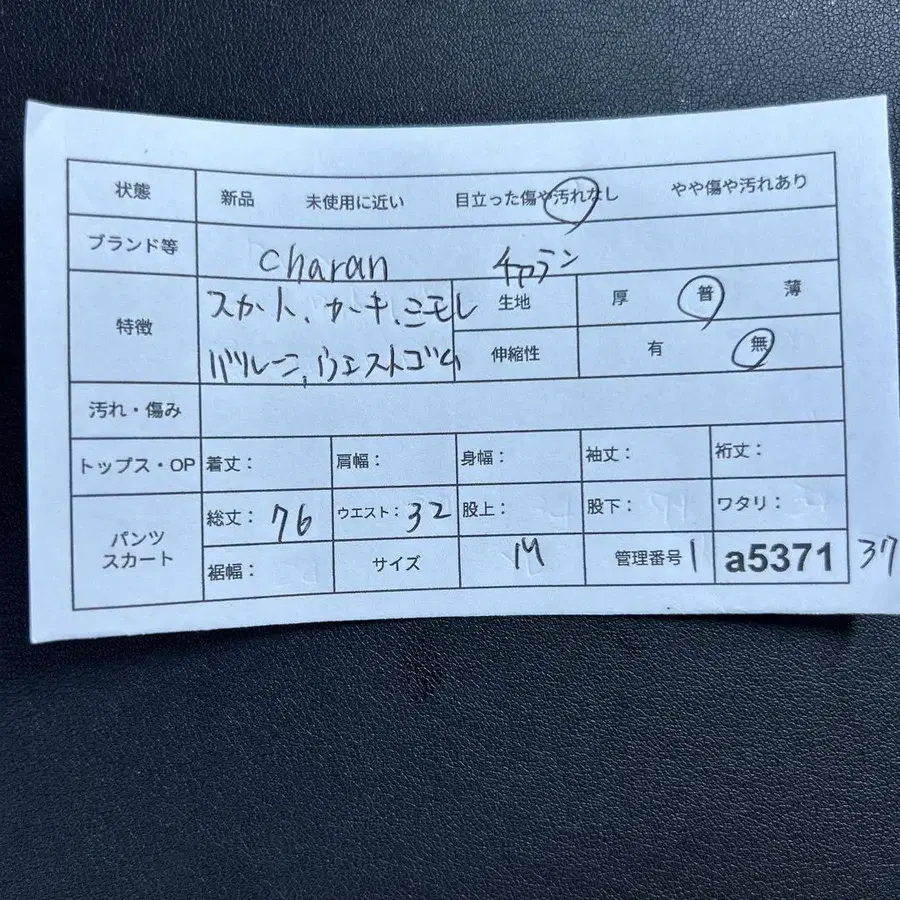 状態 新品 未使用に近い 目立った傷や汚れなし やや傷や汚れあり
ブランド等 charan チャラン
特徴 スカート、カーキ、ミモレ
バルーン、ウエストゴム
生地 厚 普 薄
伸縮性 有 無
汚れ・傷み
トップス・OP 着丈： 肩幅： 身幅： 袖丈： 裄丈：
パンツ スカート 総丈：76 ウエスト：32 股上： 股下： ワタリ：
裾幅： サイズ M 管理番号 1 a5371 37